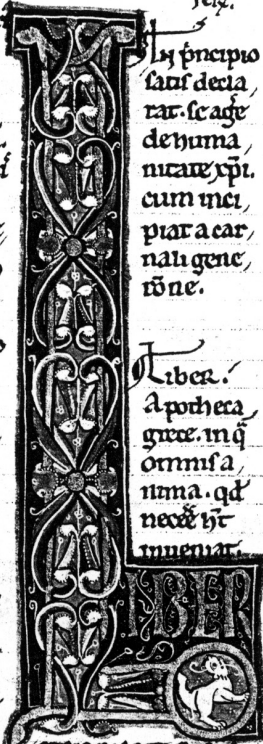 In principio
satis decla
rat. se agere
de huma
nitate xp̄i.
cum inci
piat a car
nali gene
rōne.
Liber.
Apotheca
grece. in q̄
omnis a
nima. qd̄
necēē hȳt
inveniat.
LIBER